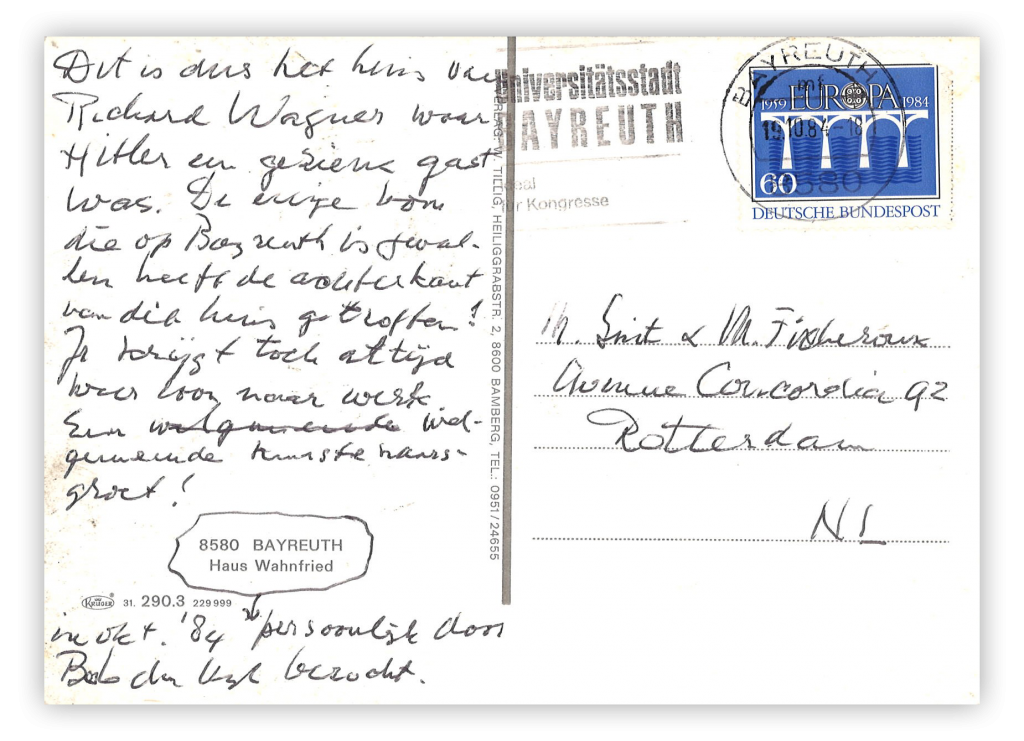 Dit is dus het huis van
Richard Wagner waar
Hitler een geziene gast
was. De enige bom
die op Bayreuth is geval-
len heeft de achterkant
van dit huis getroffen!
Je krijgt toch altijd
weer loon naar werk
Een welgemeende wel-
gemeende kunstenaars-
groet!
8580 BAYREUTH
Haus Wahnfried
KRÜGER 31. 290.3 229999
in okt. '84 persoonlijk door
Bob den Uyl bezocht.
VERLAG W. TILLIG, HEILIGGRABSTR. 2, 8600 BAMBERG, TEL.: 0951/24655
Universitätsstadt
BAYREUTH
Ideal
für Kongresse
BAYREUTH
mf
19.10.84-18
8580
1959 EUROPA 1984
60
DEUTSCHE BUNDESPOST
M. Smit & M.
Avenue Concordia 92
Rotterdam
Nl